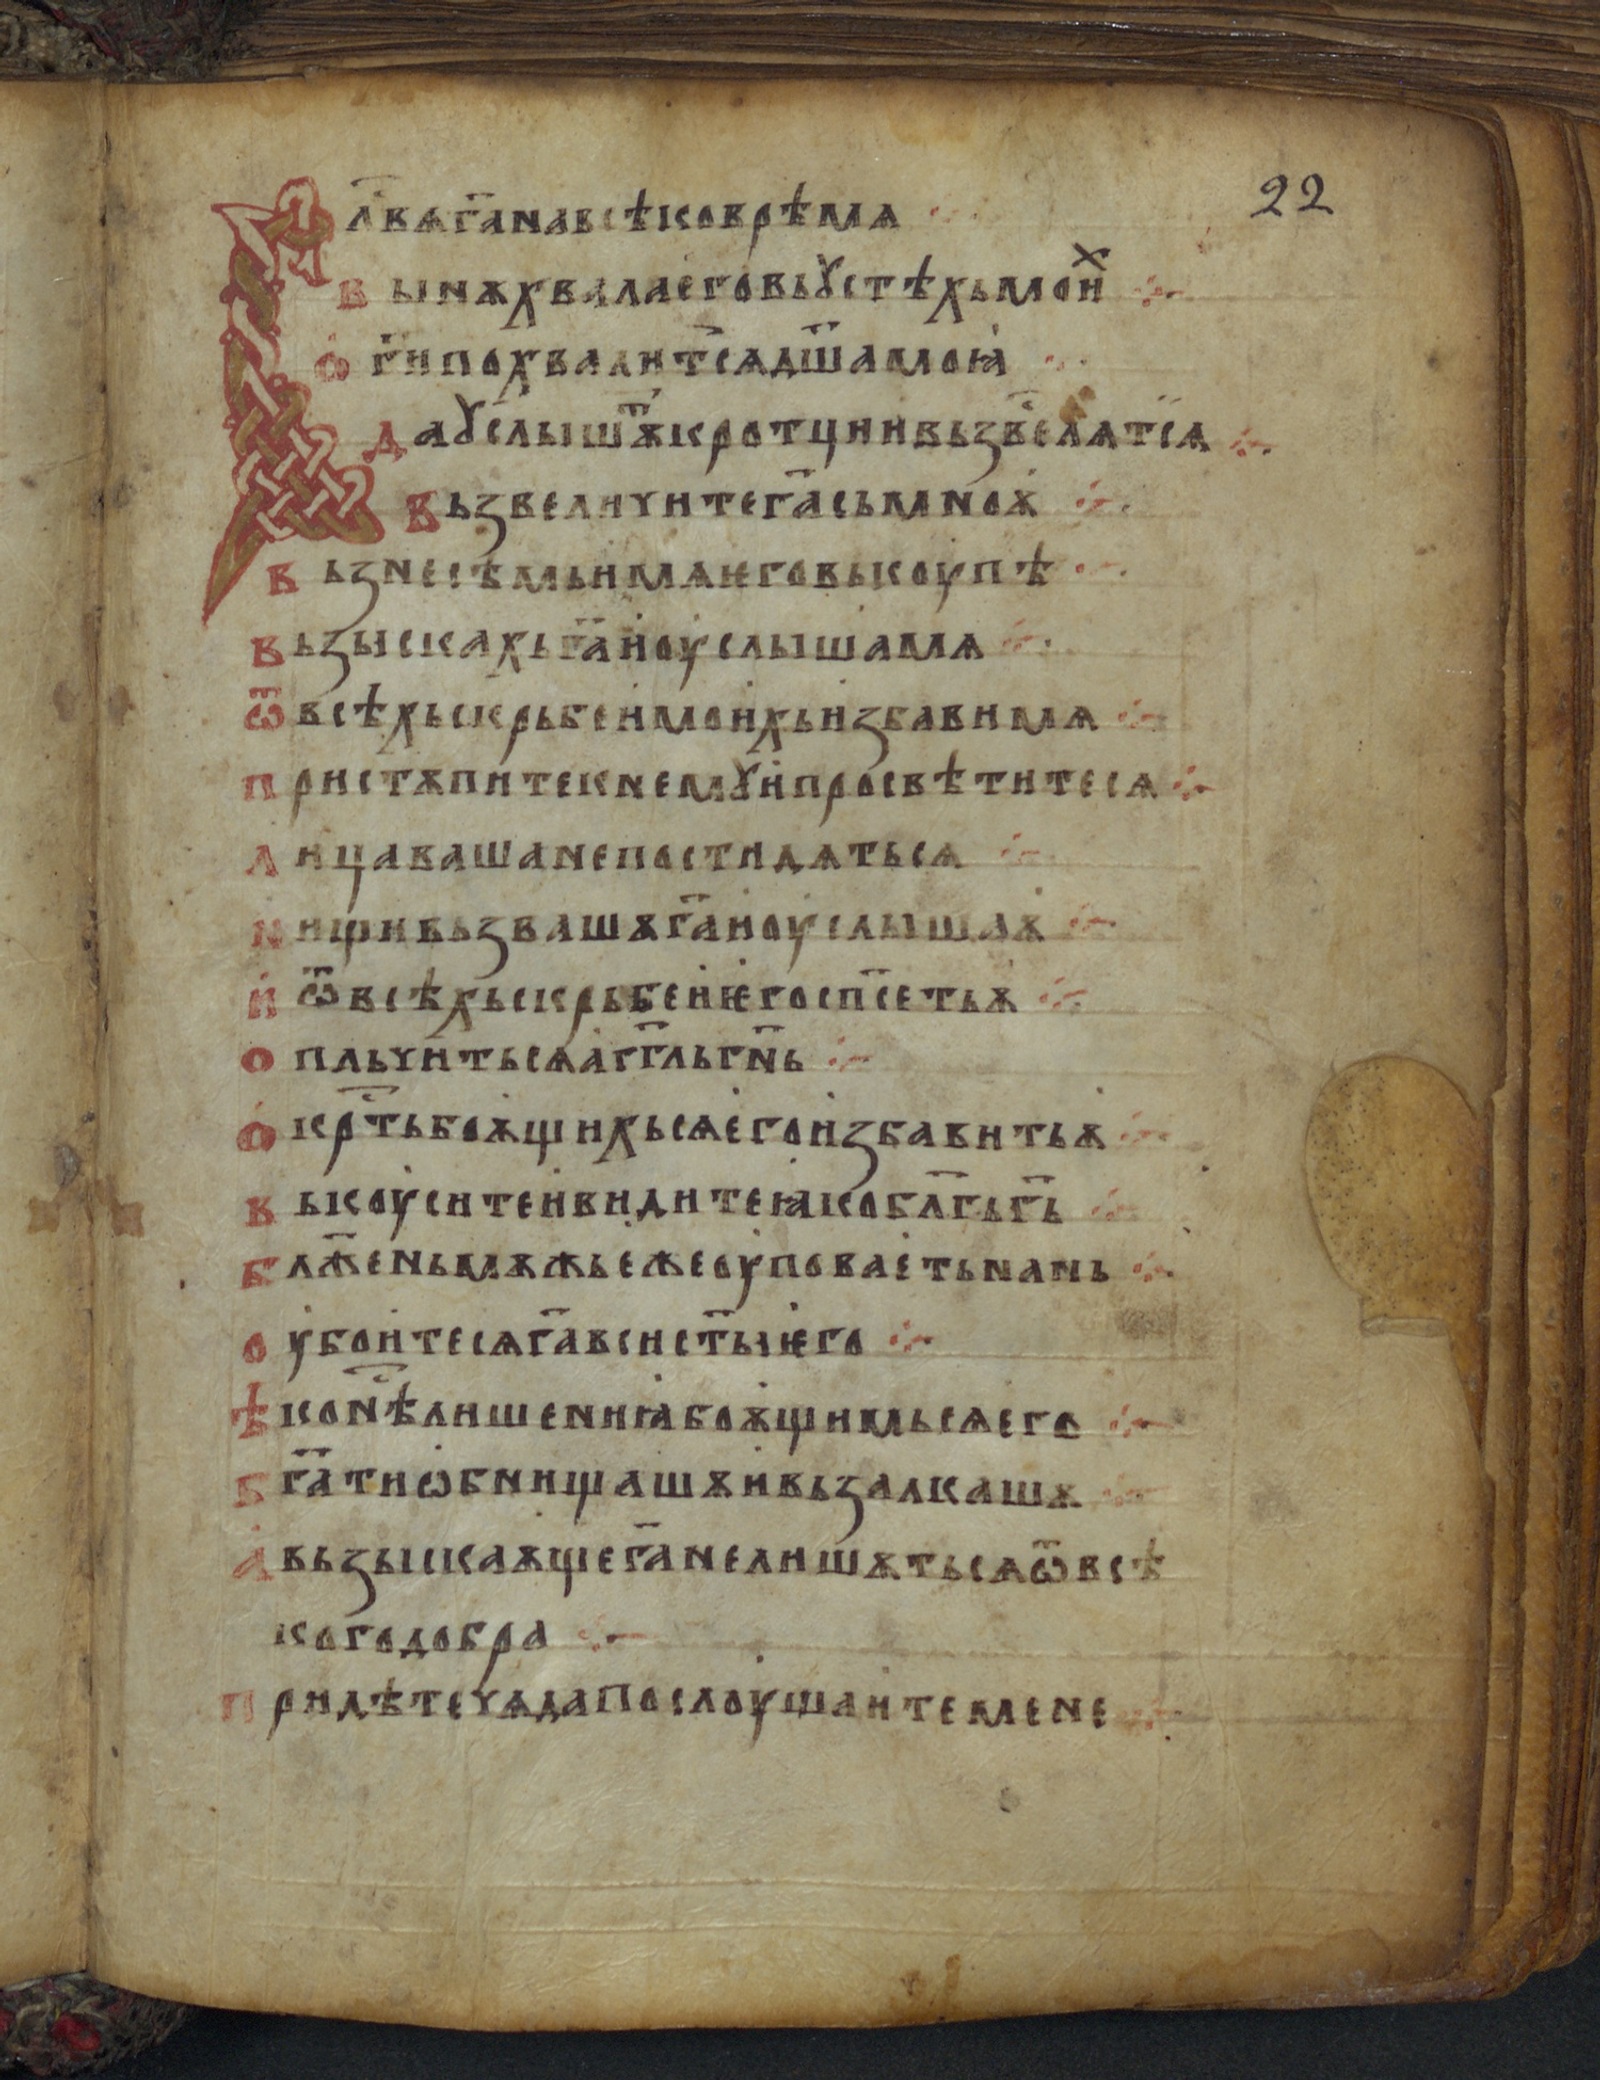 22
Бл҃вѧ г҃а на всѣко врѣмѧ
вынѫ хвала его вь ꙋстѣхь мои х
о г҃и похвалит сѧ дш҃а моꙗ
да ꙋслышѫт кротции и вьзвеселѧт сѧ
вьзвеличите г҃а сь мноѫ
вьзнесѣмь имѧ ѥго вькоупѣ
вьзыскахь г҃а и оуслыша мѧ
ѿ всѣхь скрьбеи моихь избави мѧ
пристѫпите к немꙋ и просвѣтите сѧ
лица ваша не постидѧть сѧ
нищи вьзвашѫ г҃а и оуслыша ѫ
и ѿ всѣхь скрьбеи ѥго сп҃сеть ѫ
опльчить сѧ агг҃ль гн҃ь
окрт҃ь боѫщихь сѧ его избавить ѫ
вькоусите и видите ꙗко бл҃гь г҃ь
блж҃ень мѫжь еже оуповаеть нань
оубоите сѧ г҃а вси ст҃ыи ѥго
ѣко нѣс лишениꙗ боѫщимь сѧ его
бг҃атиѡбнищашѫ и вьзалкашѫ
а вьзыскаѫщеи г҃а не лишѫть сѧ ѿ всѣ
кого добра
придѣте чѧда послоушаите мене